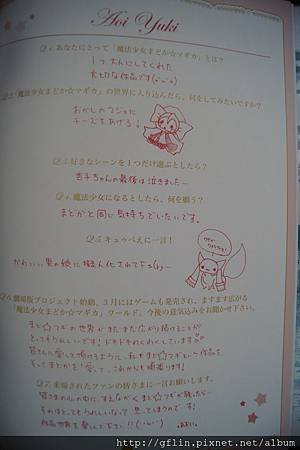 Aoi Yuki
Q.1 あなたにとって「魔法少女まどか☆マギカ」とは？
1つ大人にしてくれた
大切な作品です(･ω･)
Q.2「魔法少女まどか☆マギカ」の世界に入り込んだら、何をしてみたいですか？
おかしのマジョに
チーズをあげる！
Q.3 好きなシーンを1つだけ選ぶとしたら？
杏子ちゃんの最後は泣きましたー
Q.4 魔法少女になるとしたら、何を願う？
まどかと同じ気持ちでいたいです。
Q.5 キュゥべえに一言！
かわいい男の娘に擬人化されて下さい
Q.6 劇場版プロジェクト始動、3月にはゲームも発売され、ますます広がる
「魔法少女まどか☆マギカ」ワールド。今後の意気込みをお聞かせ下さい。
まど☆マギの世界がまだまだながり続けることが
とってもうれしいです！ドキドキわくわくしています
皆さんに愛して頂けるように、私もまど☆マギという作品を
そしてまどかを愛して、これからも頑張ります！
Q.7 来場されたファンの皆さまに一言お願いします。
皆さまの心の中に
まど☆マギが残ったら…
作品世界を楽しんで下さい!!
http://gflin.pixnet.net/album